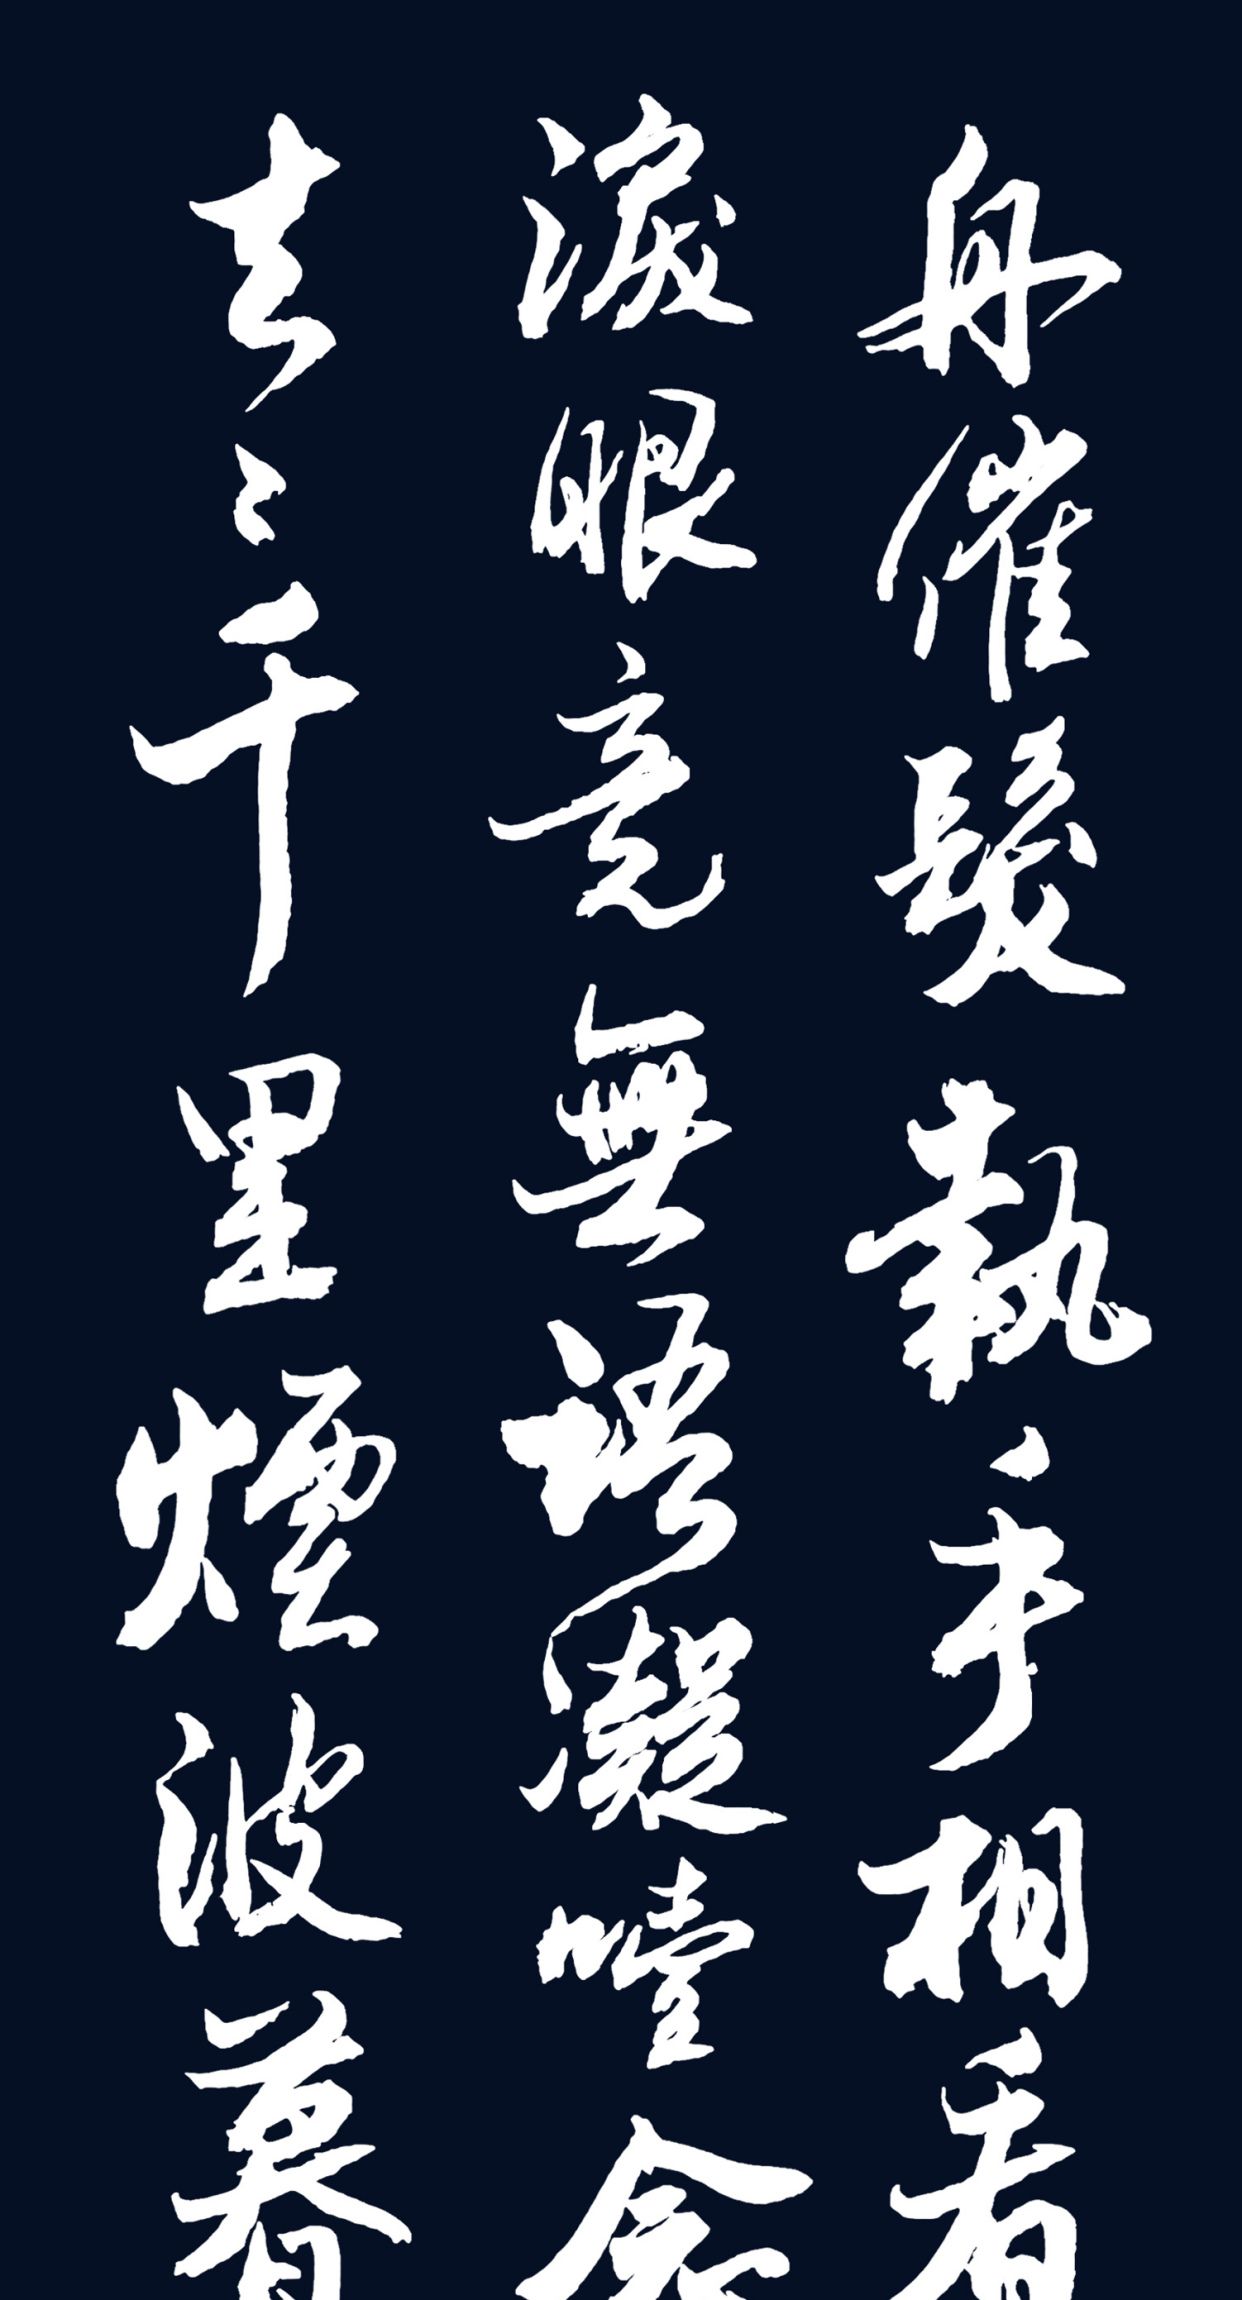 舟催髮執手相看
淚眼竟無語凝噎念
去々千里煙波暮